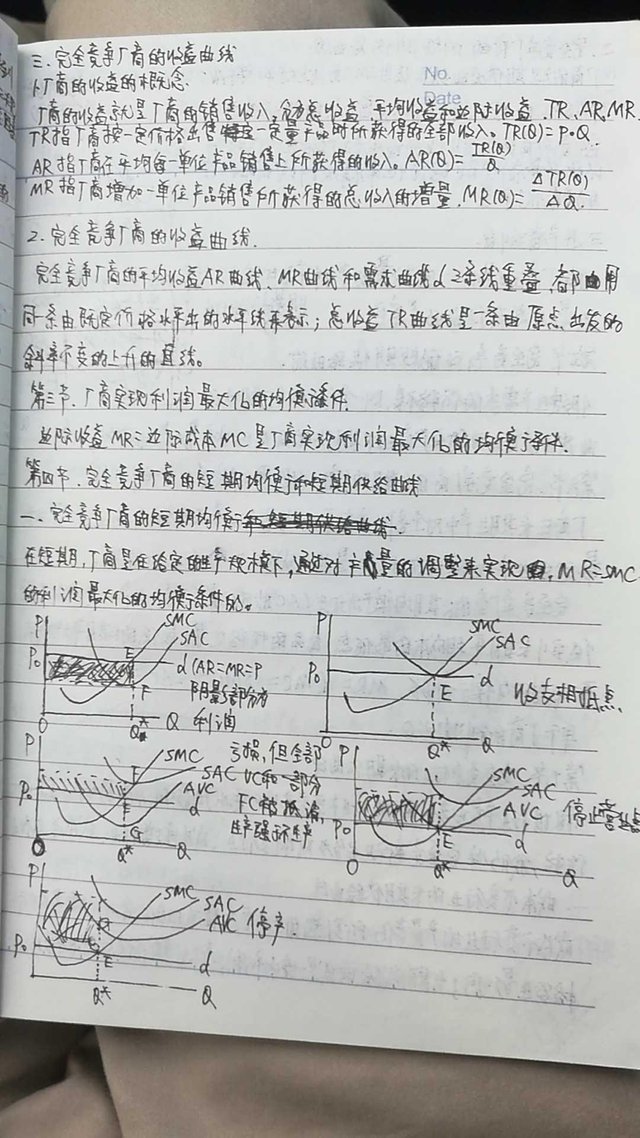 No.
Date
三.完全竞争厂商的收益曲线
1.厂商的收益的概念
厂商的收益就是厂商的销售收入,分为总收益、平均收益和边际收益.TR,AR,MR.
TR指厂商按一定价格出售一定量产品时所获得的全部收入。TR(Q)=P·Q.
AR指厂商在平均每一单位产品销售上所获得的收入。AR(Q)=TR(Q)/Q
MR指厂商增加一单位产品销售所获得的总收入的增量.MR(Q)=△TR(Q)/△Q.
2.完全竞争厂商的收益曲线.
完全竞争厂商的平均收益AR曲线、MR曲线和需求曲线d三条线重叠,都用
同一条由既定价格水平出的水平线来表示;总收益TR曲线是一条由原点出发的
斜率不变的上升的直线。
第三节.厂商实现利润最大化的均衡条件.
边际收益MR=边际成本MC是厂商实现利润最大化的均衡条件.
第四节.完全竞争厂商的短期均衡和短期供给曲线
一.完全竞争厂商的短期均衡和短期供给曲线.
在短期,厂商是在给定的生产规模下,通过对产量的调整来实现MR=SMC
的利润最大化的均衡条件的。
P SMC SAC
P₀ E d(AR=MR=P
F 阴影部分为
O Q* Q 利润
P SMC SAC
P₀ d
E 收支相抵点
O Q* Q
P 亏损,但全部
SMC SAC VC和一部分
F AVC FC被抵消,
P₀ E d 生产强于不生产
G
O Q* Q
P SMC SAC
AVC 停止营业点
P₀ E d
O Q* Q
P SMC SAC
AVC 停产.
P₀ E d
O Q* Q